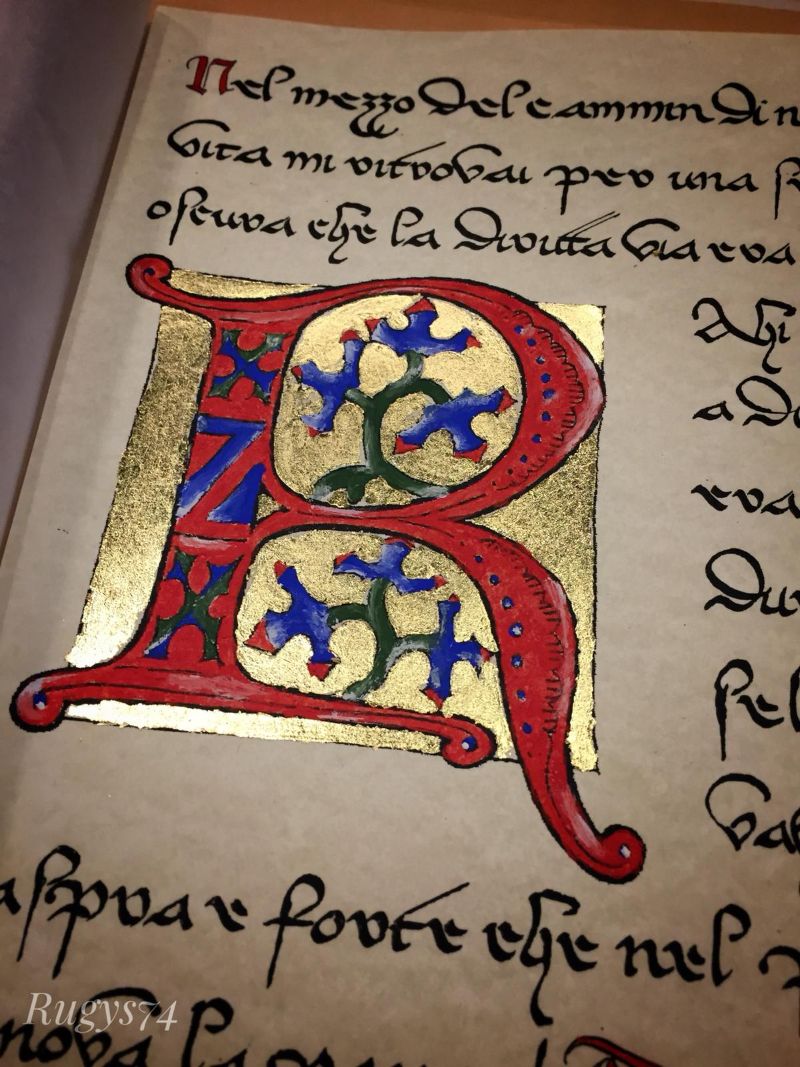 Nel mezzo del cammin di n
vita mi ritrovai per una se
oscura che la diritta via era
R
Ahi
a di
era
du
sel
va
aspra e forte che nel p
nova la pau
Rugys74